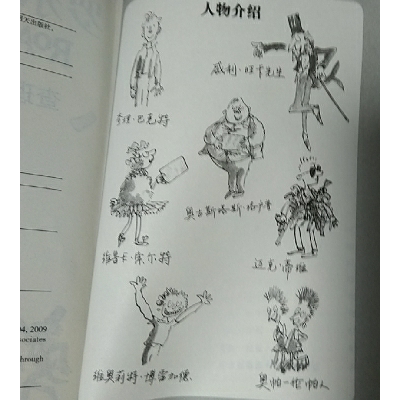 人物介绍
威利·旺卡先生
查理·巴克特
奥古斯塔斯·格卢普
维鲁卡·索尔特
迈克·蒂维
维奥莉特·博雷加德
奥帕-伦帕人
天出版社。
04, 2009
sociates
through